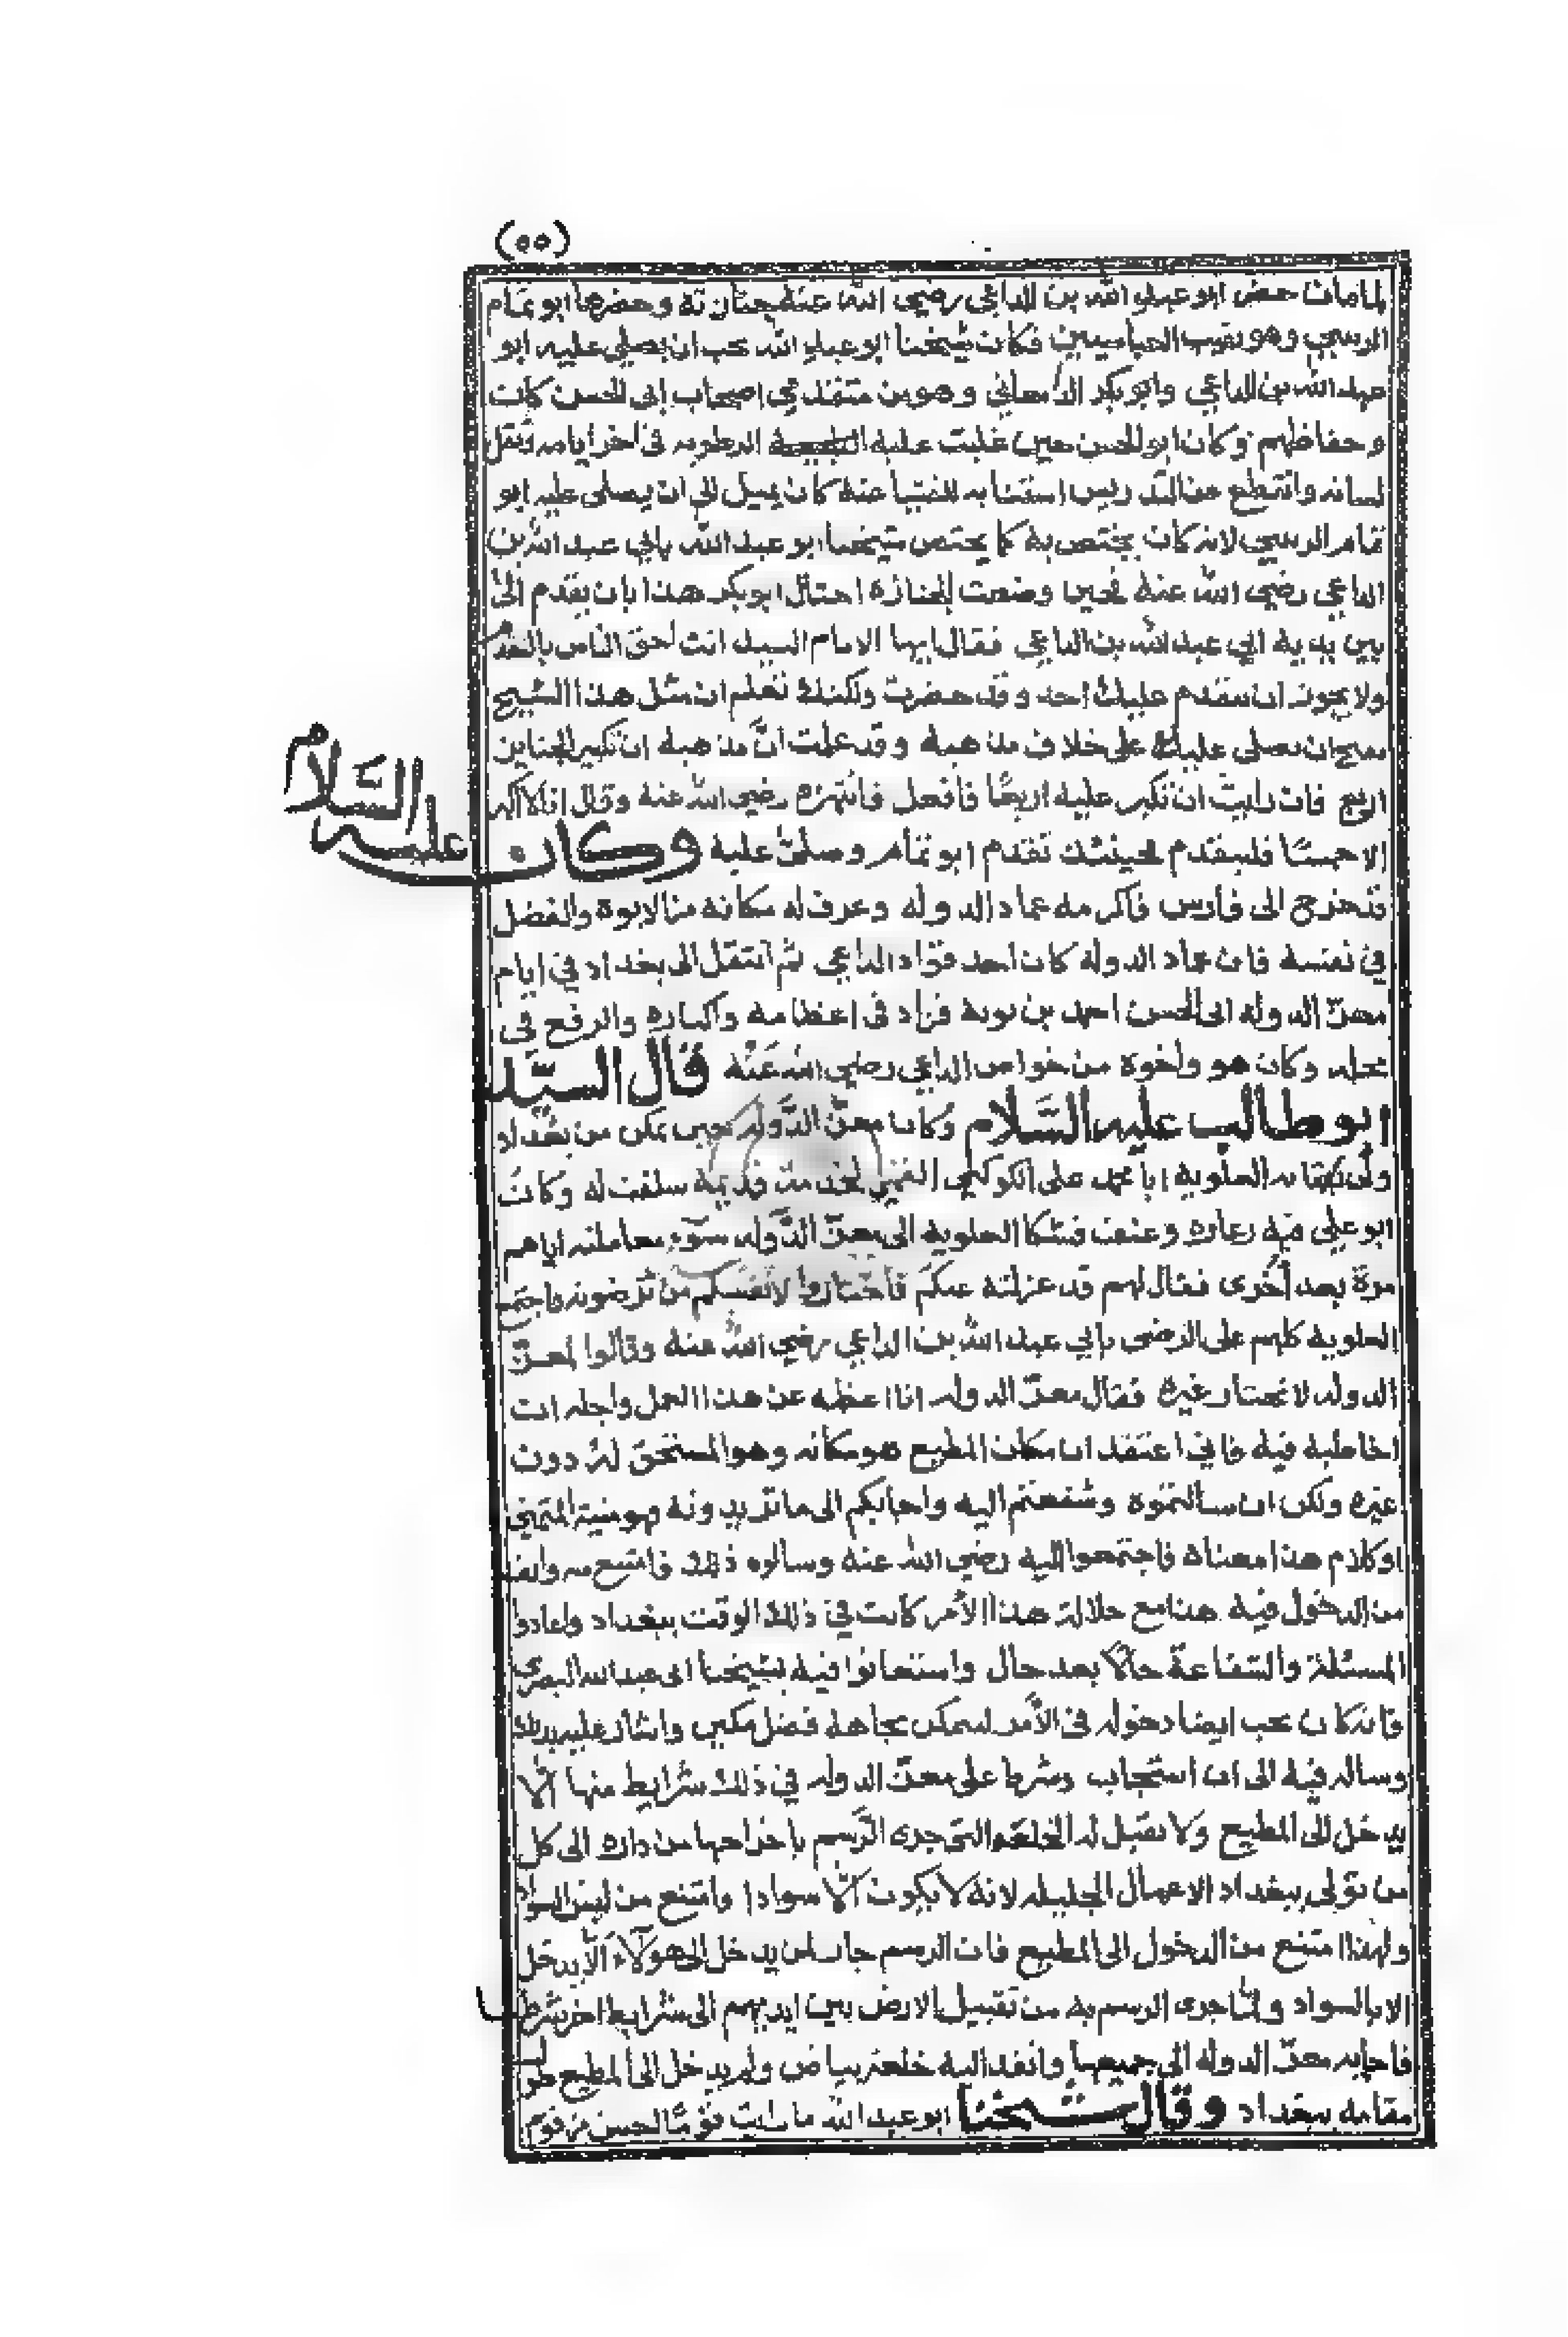 (٥٥)
لما مات حضر ابو عبد الله بن الداعي رضي الله عنه جنازته وحضرها ابو تمام
الزينبي وهو نقيب العباسيين فكان شيخنا ابو عبد الله يحب ان يصلي عليه ابو
عبد الله بن الداعي وابو بكر الدامغاني وهو من متقدمي اصحاب ابي الحسن كان
وحفاظهم وكان ابو الحسن حين غلبت عليه الرطوبه في اخر ايامه وثقل
لسانه وانقطع عن التدريس استنابه للفتيا عنه كان يميل الى ان يصلي عليه ابو
تمام الزينبي لانه كان يختص به كما يختص شيخنا ابو عبد الله بابي عبد الله بن
الداعي رضي الله عنه فحين وضعت الجنازة احتال ابو بكر هذا بان تقدم الى
بين يديه ابي عبد الله بن الداعي فقال ايها الامام السيد انت احق الناس بالتقدم
ولا يجوز ان يتقدم عليك احد وقد حضرت ولكنك تعلم ان مثل هذا الشيخ
ان يصلى عليه على خلاف مذهبه وقد علمت انّ مذهبه ان تكبير الجنايز
اربع فان رايت ان تكبر عليه اربعًا فافعل فانتهره رضي الله عنه وقال انا لا اكبر
الا خمسًا فليتقدم فحينئذ تقدم ابو تمام وصلىّ عليه وكان عليه السّلام
قد خرج الى فارس فاكرمه عماد الدوله وعرف له مكانه من الابوة والفضل
في نفسه فان عماد الدولة كان احد قوّاد الداعي ثم انتقل الى بغداد في ايام
معزّ الدوله ابي الحسن احمد بن بويه فزاد في اعظامه واكباره والرفع في
محله وكان هو واخوه من خواص الداعي رضي الله عَنْه قال السيّد
ابو طالب عليه السّلام وكان معزّ الدّوله حين تمكن من بغداد
ولّى نقابه العلويه ابا علي الكوكبي القمّي لخدمة قديمة سلفت له وكان
ابو علي فيه زعاره وعنف فشكا العلوية الى معزّ الدّوله سوء معاملته اياهم
مرة بعد اُخرى فقال لهم قد عزلته عنكم فاختاروا لانفسكم من ترضونه فاجتمع
العلويه كلهم على الرضى بابي عبد الله بن الداعي رضي الله عنه وقالوا لمعزّ
الدوله لا نختار غيره فقال معزّ الدوله انا اعظمه عن هذا العمل واجله ان
اخاطبه فيه فاني اعتقد ان مكان المطيع هو مكانه وهو المستحق لهُ دون
غيره ولكن ان سالتموه وشفعتم اليه واجابكم الى ما تريدونه فهو منية المتمني
او كلام هذا معناه فاجتمعوا اليه رضي الله عنه وسالوه ذلك فامتنع منه وانف
من الدخول فيه هذا مع جلالة هذا الأمر كانت في ذلك الوقت ببغداد وعادوا
المسئلة والشفاعة حالًا بعد حال واستعانوا فيه بشيخنا ابي عبد الله البصري
فانه كان يحب ايضا دخوله في الأمر ليتمكن بجاهه فضل تمكين واشار عليه بذلك
وساله فيه الى ان استجاب وشرط على معزّ الدوله في ذلك شرايط منها الّا
يدخل الى المطيع ولا يقبل له الخلعه التى جرى الرّسم باخراجها من داره الى كل
من تولى ببغداد الاعمال الجليله لانه لا يكون الّا سوادا وامتنع من لبس السواد
ولهذا امتنع من الدخول الى المطيع فان الرسم جار لمن يدخل الى هولاء الّا يدخل
الا بالسواد ولما جرى الرسم به من تقبيل الارض بين ايديهم الى شرايط اخر شرطها
فاجابه معزّ الدوله الى جميعها وانفذ اليه خلعة بياض ولم يدخل الى المطيع طول
مقامه ببغداد وقال شيخنا ابو عبد الله ما رايت قومًا احسن من قوم